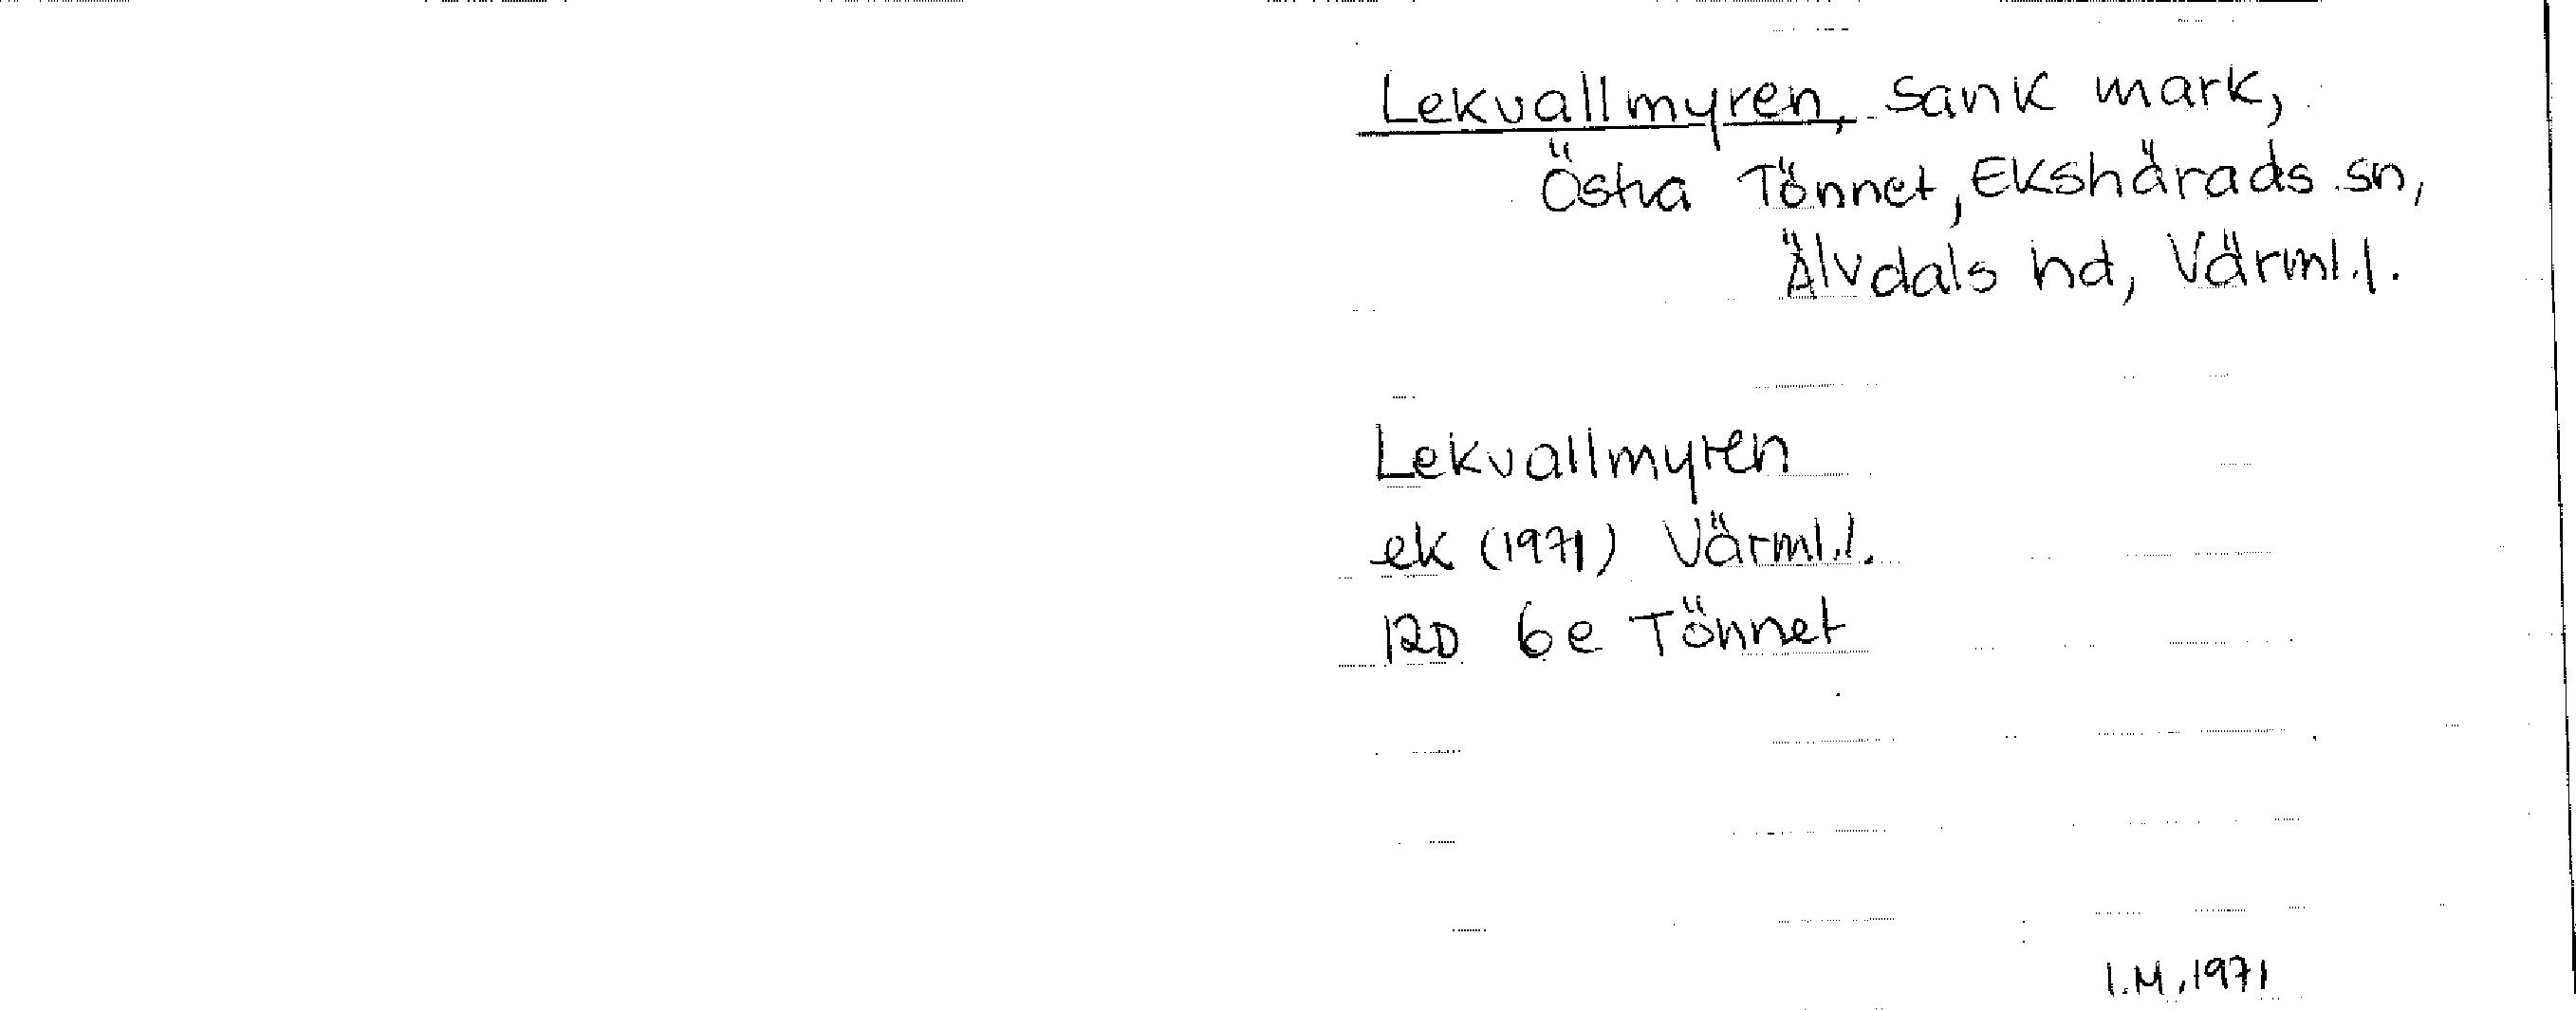 Lekvallmyren, sank mark,
Östra Tönnet, Ekshärads sn,
Älvdals hd, Värml.l.
Lekvallmyren
ek (1971) Värml.l.
12D 6e Tönnet
I.M, 1971